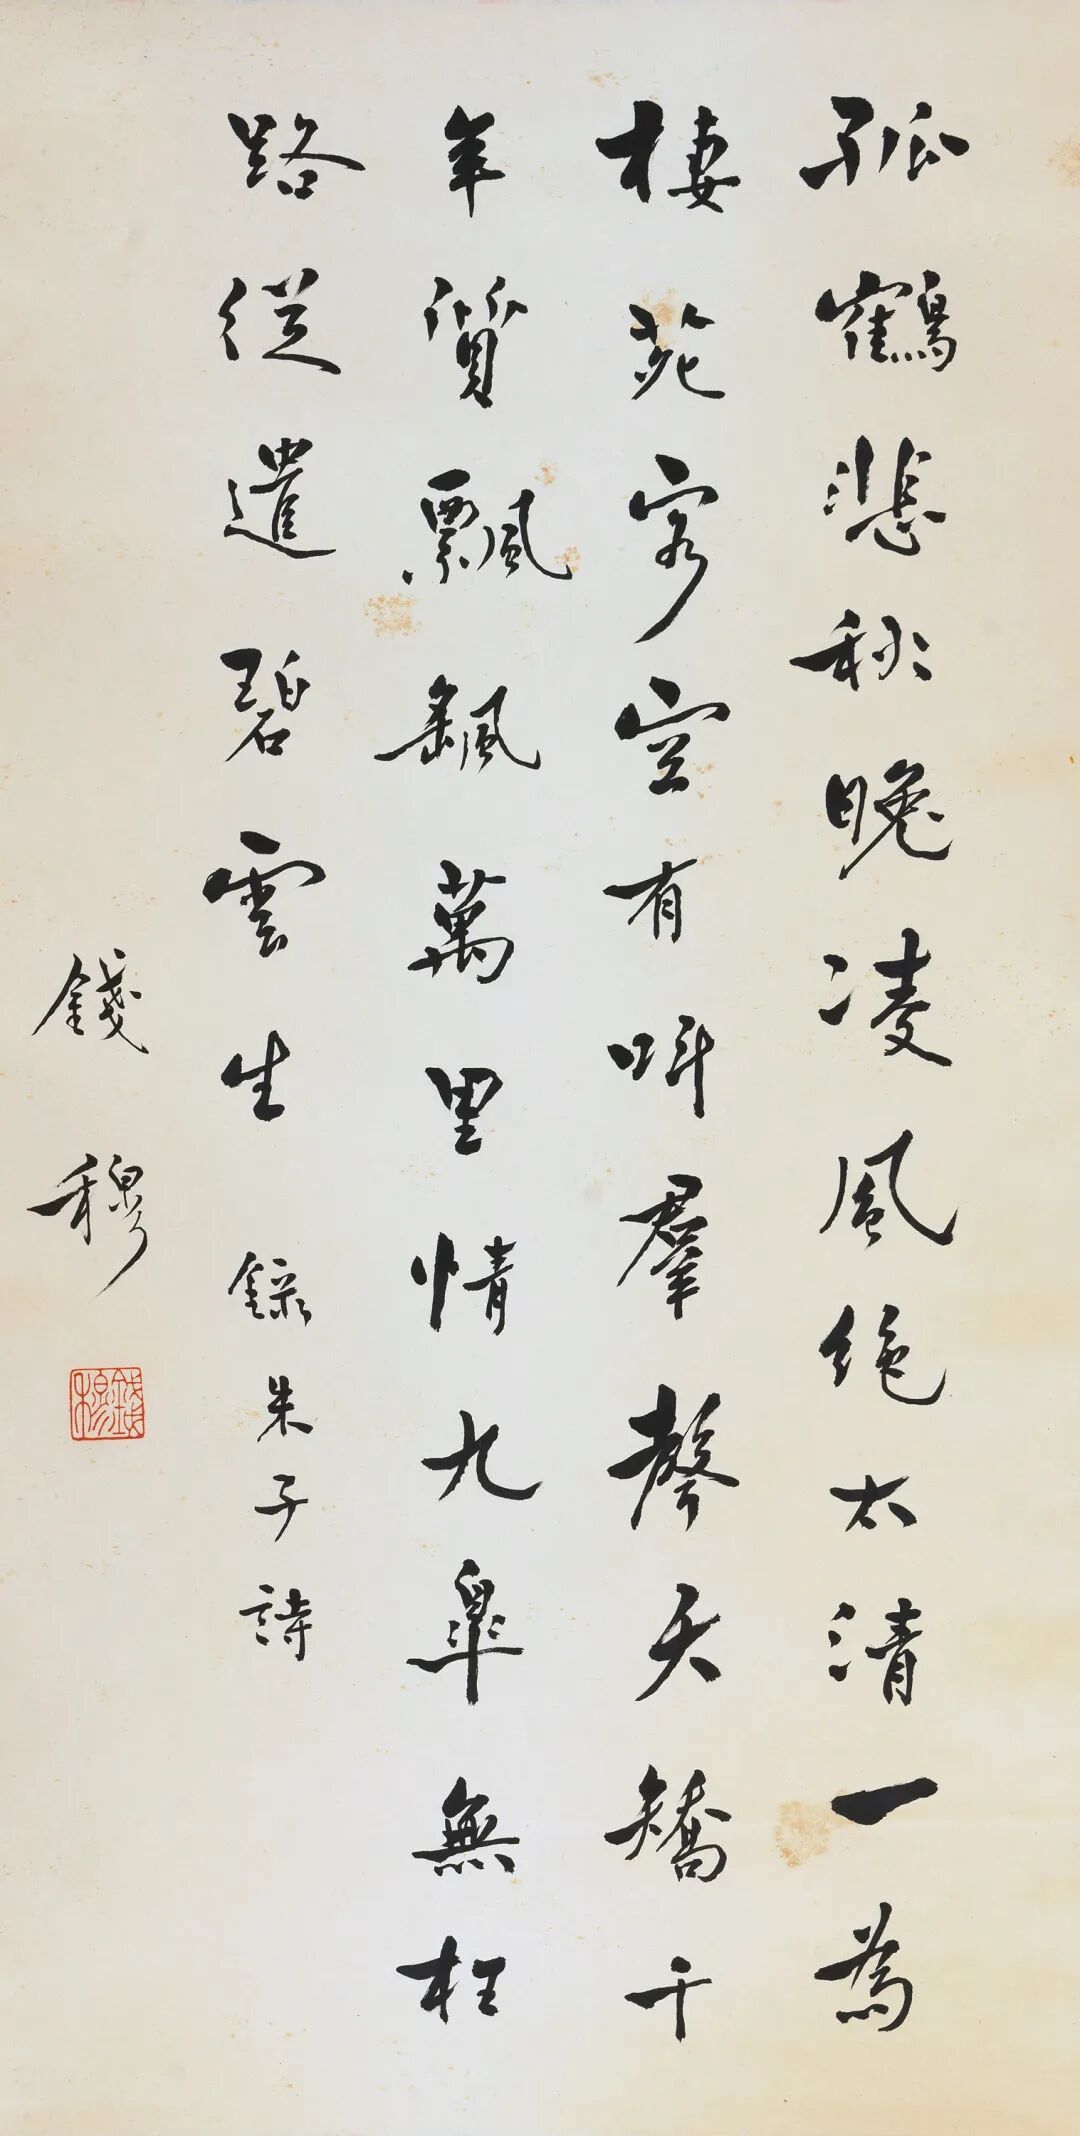 孤鶴悲秋晚凌風絶太清一為
棲苑客空有呌羣聲夭矯千
年質飄颻萬里情九皋無枉
路從遣碧雲生 錄朱子詩
錢穆
錢穆